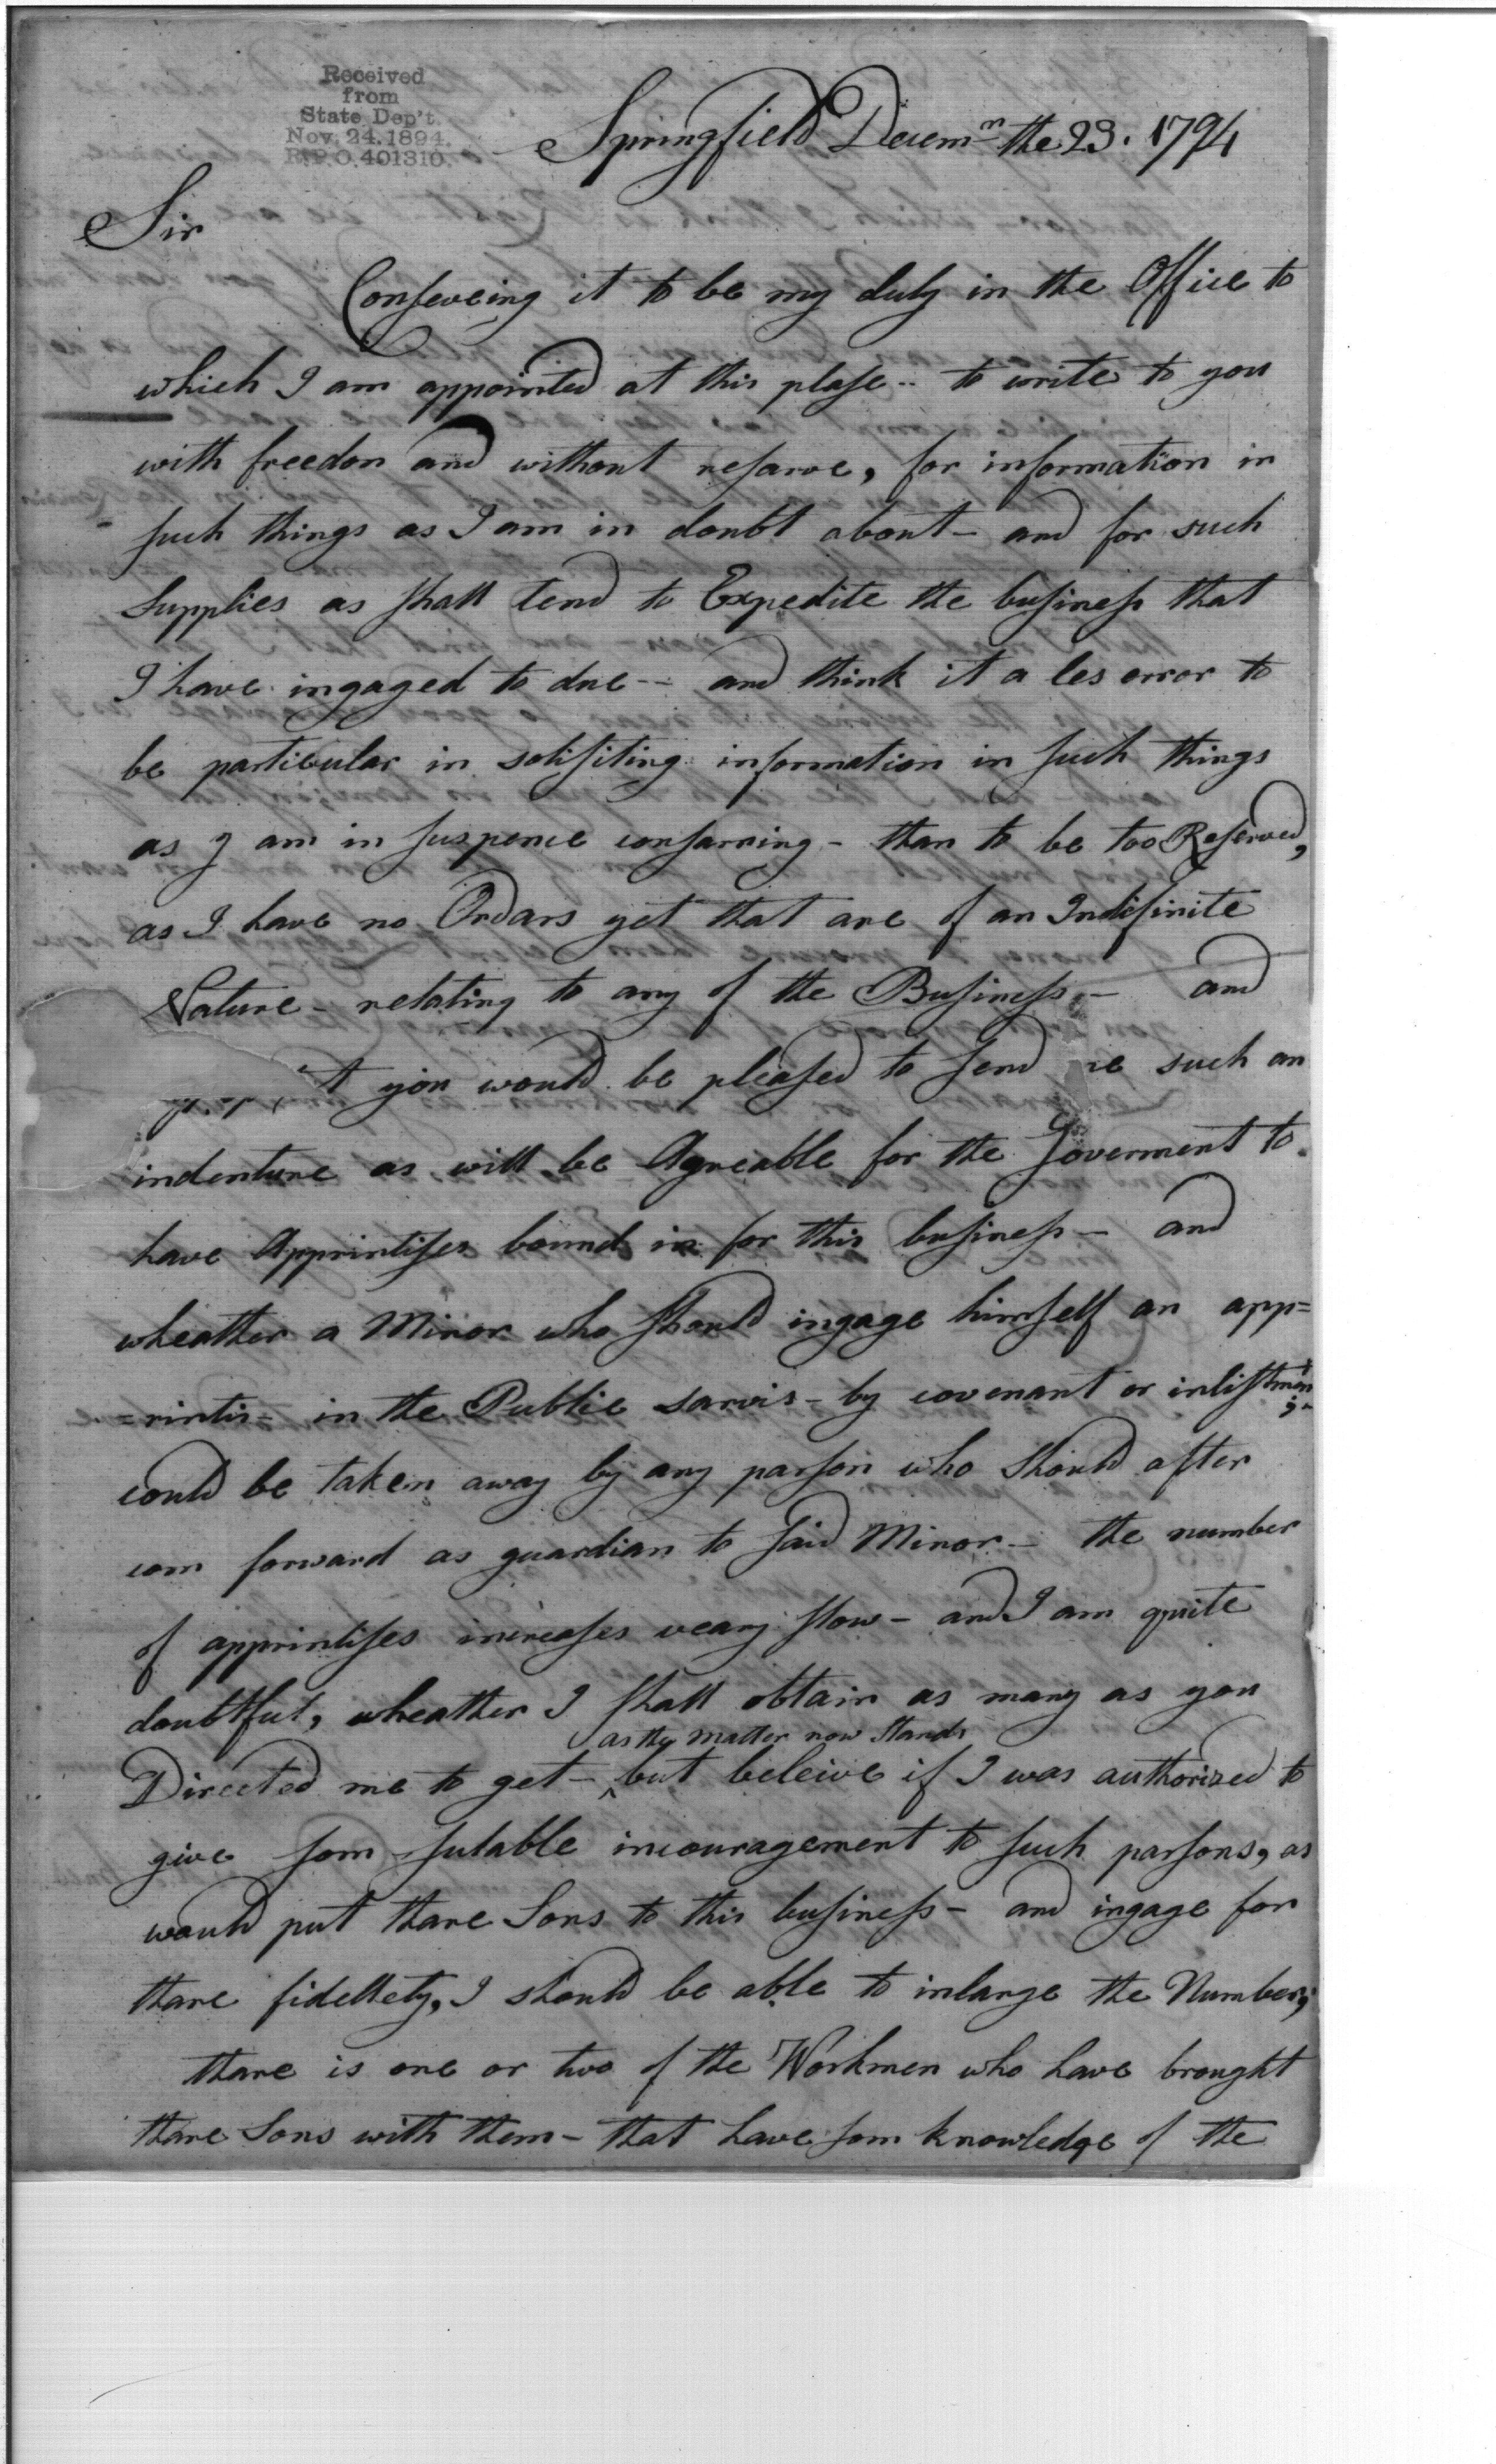 Received
from
State Dep't
Nov. 24. 1894.
R.P.O. 401310.
Springfield Decemr the 23. 1794
Sir
Conseveing it to be my duly in the Office to
which I am appointed at this plase -- to write to you
with freedon and without resarve, for information in
such things as I am in doubt about - and for such
Supplies as shall tend to Expedite the business that
I have ingaged to due -- and think it a les error to
be particular in solisiting information in such things
as I am in suspence consarning - than to be too Reserved,
as I have no Ordars yet that are of an Indefinite
Nature - relating to any of the Business - and
you would be pleased to send such an
indenture as will be Agreable for the Goverment to
have Apprintises bound in for this business - and
wheather a Minor who should ingage himself an app=
=rintis - in the Publie sarvis - by covenant or inlistmen
could be taken away by any parson who should after
com forward as guardian to said Minor - the number
of apprintises increases veary slow - and I am quite
doubtful, wheather I shall obtain as many as you
as the matter now Stands
Directed me to get - ^ but beleive if I was authorized to
give som sutable incouragement to such parsons, as
would put thare Sons to this business - and ingage for
thare fidellety, I should be able to inlarge the Number;
thare is one or two of the Workmen who have brought
thare Sons with them - that have som knowledge of the